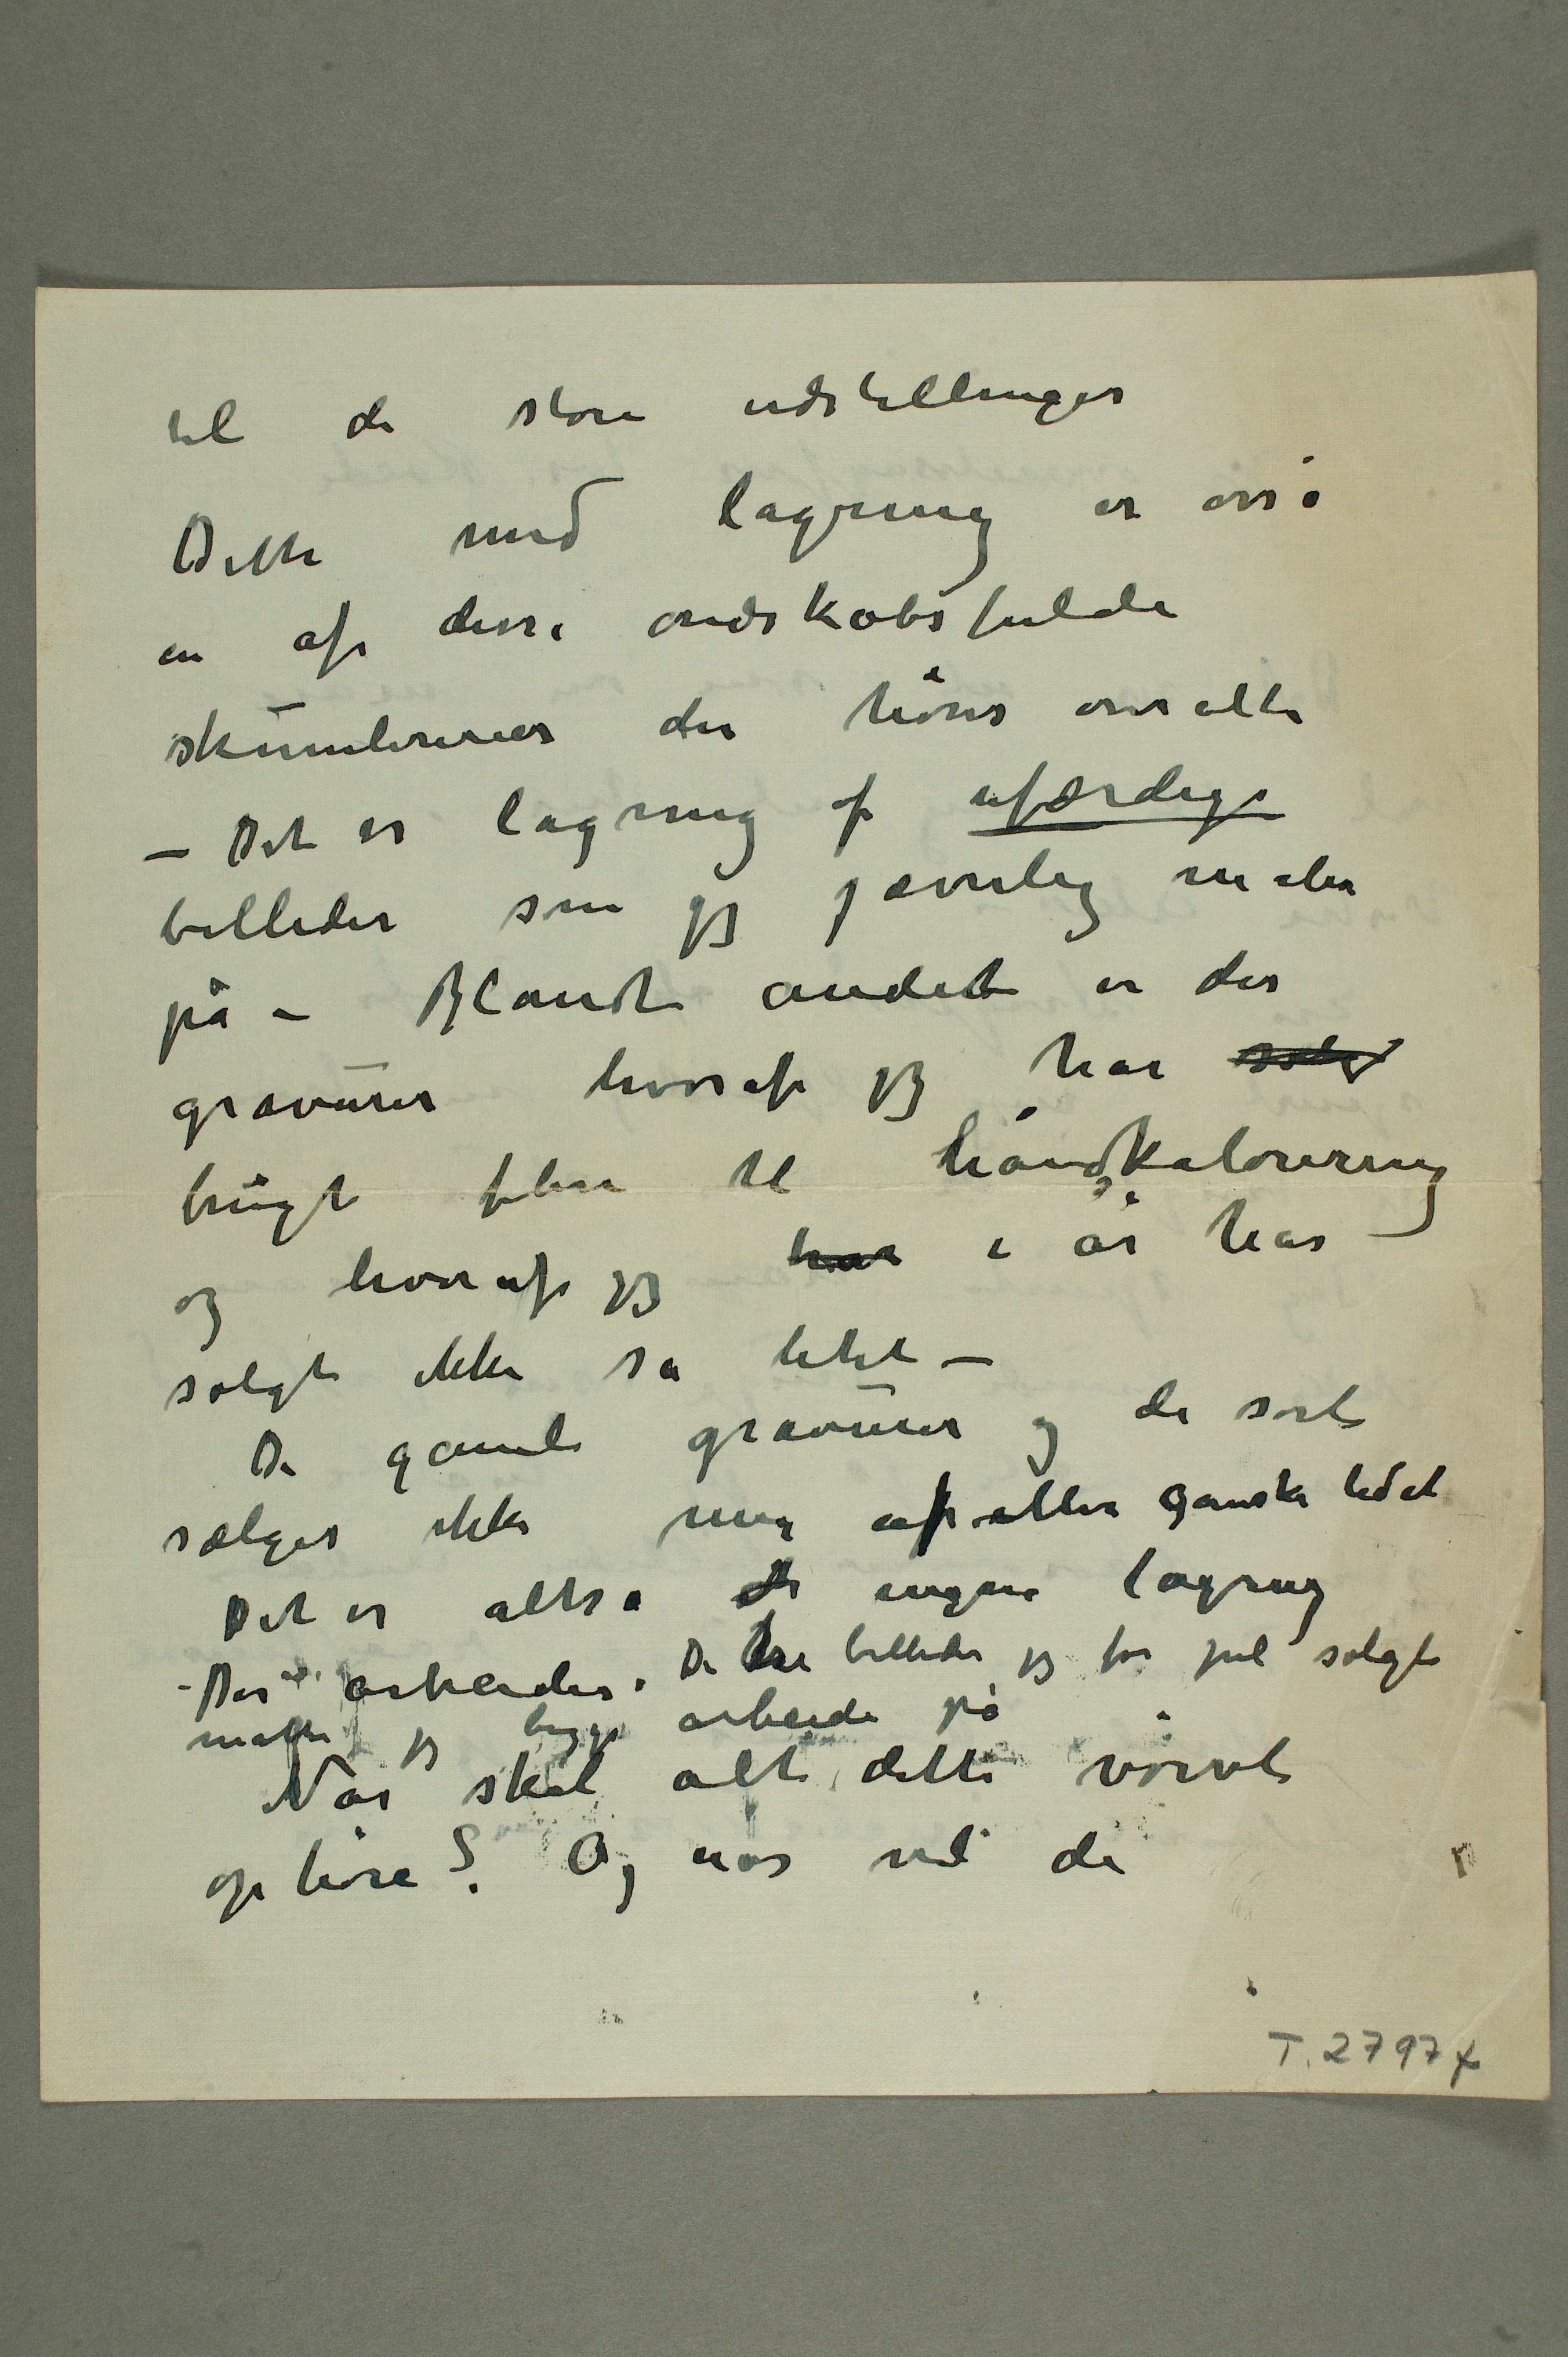 til de store udstillinger
Dette med lagring er osså
en af disse ondskabsfulde
skumlerier der høres overalt
– Det er lagring af ufærdige
billeder som jeg jævnlig maler
på – Blandt andet er der
gravurer hvoraf jeg har solgt
brugt flere til håndkolorering
og hvoraf jeg har i år har
solgt ikke så lidet –
De gamle gravurer og de sort
sælges ikke mer af eller ganske lidet
Det er altså ingen lagring
– Der arbeides. De tre billeder jeg før jul solgte
måtte jeg begge arbeide på
Når skal alt dette vrøvl
ophøre? Og når vil de
T. 2797